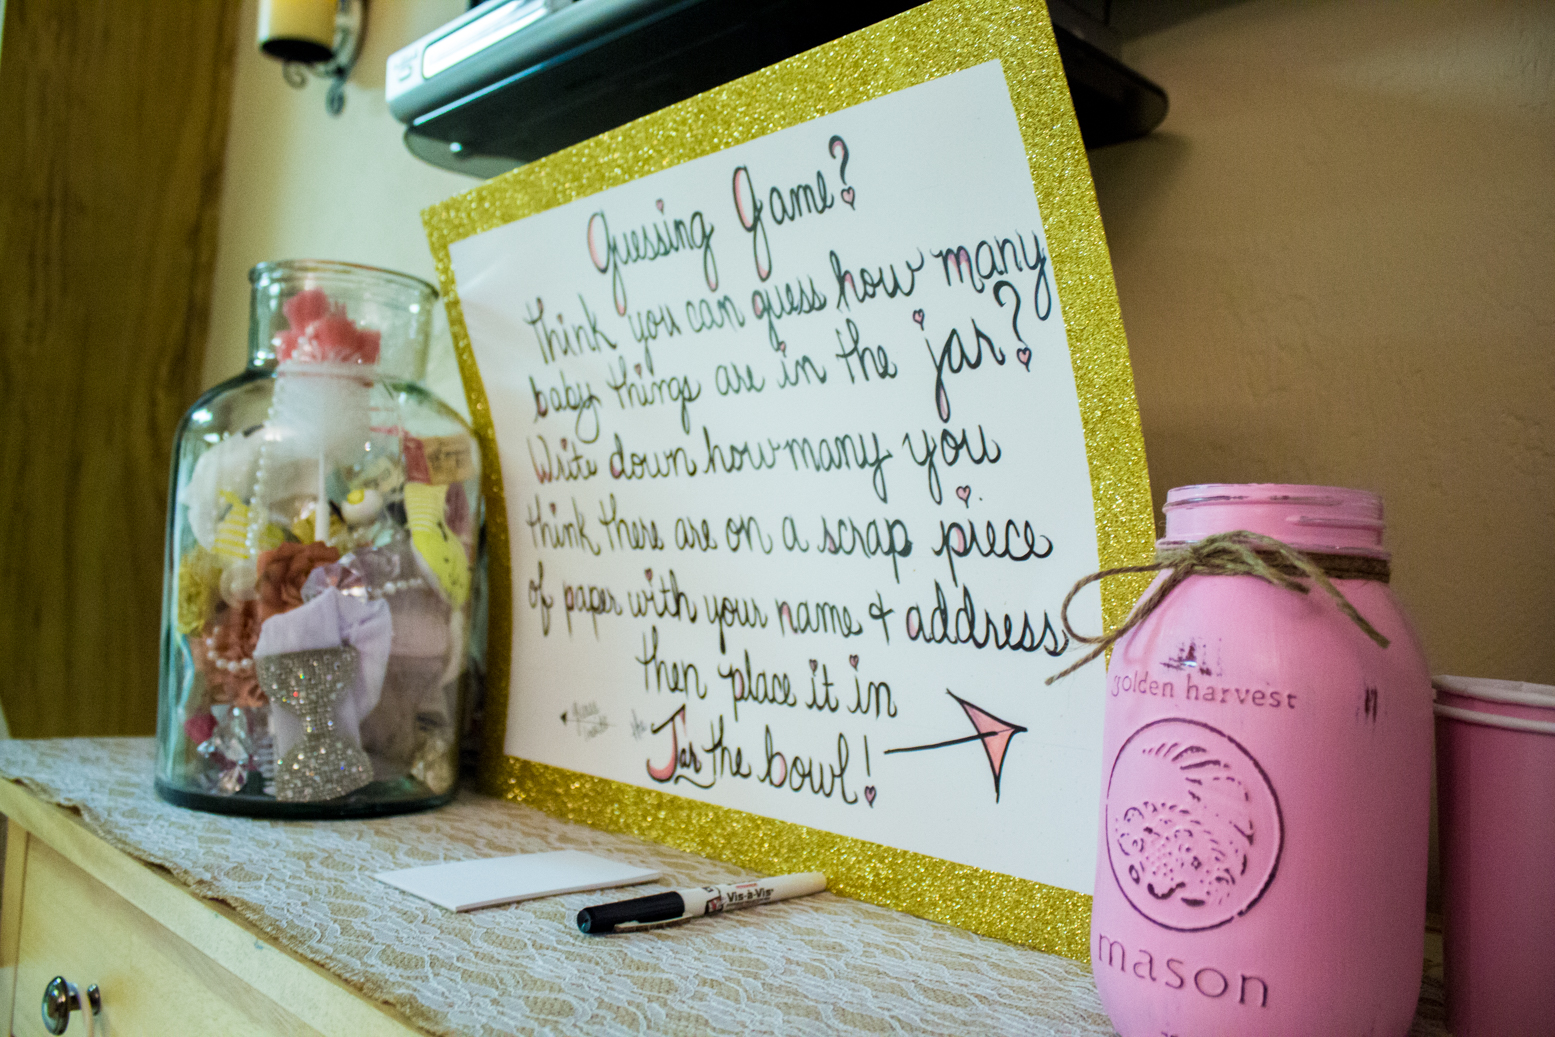 Guessing Game?
Think you can guess how many
baby things are in the jar?
Write down how many you
think there are on a scrap piece
of paper with your name & address
then place it in
Jar the bowl!
Vis-à-Vis
golden harvest
mason